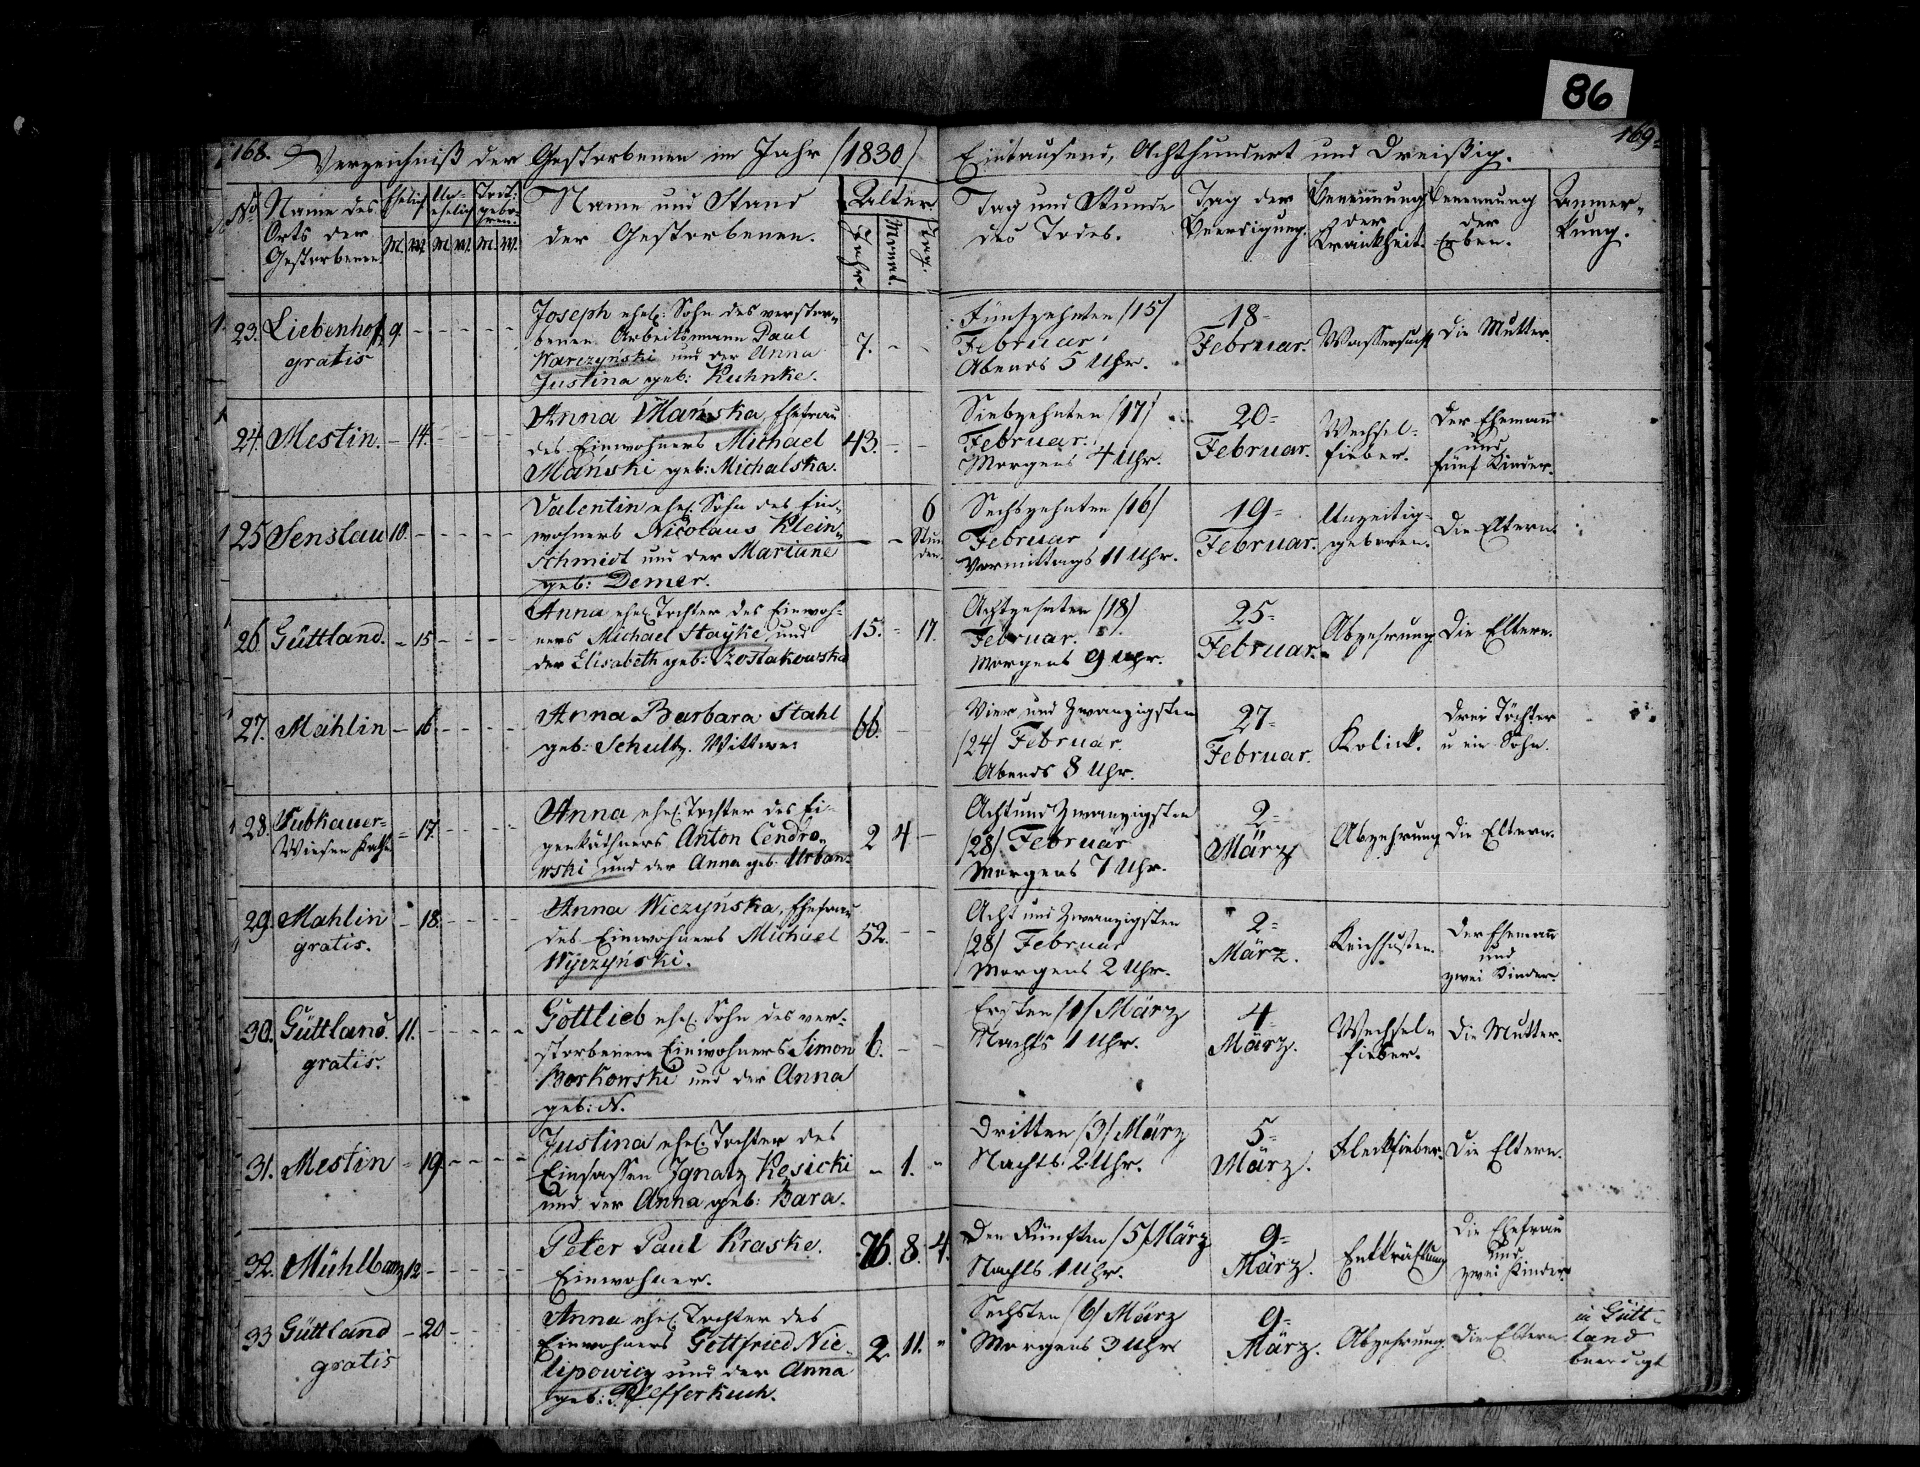 86
168. Verzeichniß der Gestorbenen im Jahr /1830/
Eintausend, Achthundert und Dreißig.
169.
No
Name des Orts der Gestorbenen.
Ehelich
Un-ehelich
Todt-gebo-ren.
M. W. M. W. M. W.
Name und Stand
der Gestorbenen.
Alter
Jahr.
Monat.
Tag.
Tag und Stunde
des Todes.
Tag der
Beerdigung.
Benennung
der
Krankheit.
Benennung
der
Erben.
Anmer-
kung.
23. Liebenhoff 9. - - - - -
gratis
Joseph ehel: Sohn des verstor-
benen Arbeitsmann Paul
Warczyński und der Anna
Justina geb: Kuhnke.
7. - -
Fünfzehnten /15/
Februar.
Abends 5 Uhr.
18-
Februar.
Wassersucht
Die Mutter.
24. Mestin. - 14. - - - -
Anna Mańska, Ehefrau
des Einwohners Michael
Mański geb: Michalska.
43. - -
Siebzehnten /17/
Februar.
Morgens 4 Uhr.
20-
Februar.
Wechsel-
fieber.
Der Ehemann
und
fünf Kinder.
25. Senslau 10. - - - - -
Valentin ehel. Sohn des Ein-
wohners Nicolaus Klein-
schmidt und der Mariane
geb: Demer.
- - 6
Stun-
den.
Sechszehnten /16/
Februar
Vormittags 11 Uhr.
19-
Februar.
Unzeitig
geboren.
Die Eltern.
26. Güttland. - 15 - - - -
Anna ehel. Tochter des Einwoh-
ners Michael Stayke und
der Elisabeth geb:
15. - 17.
Achtzehnten /18/
Februar.
Morgens 9 Uhr.
25-
Februar.
Abzehrung
Die Eltern.
27. Mahlin - 16. - - - -
Anna Barbara Stahl
geb: Schultz. Wittwe.
66. -
Vier und Zwanzigsten
/24/ Februar.
Abends 8 Uhr.
27-
Februar.
Kolick.
Drei Töchter
u ein Sohn.
28. Subkauer-
Wiesen Kathe
- 17. - - - -
Anna ehel. Tochter des Ei-
genkäthners Anton Cendro-
wski und der Anna geb. Urban-
2 4 -
Acht und Zwanzigsten
/28/ Februar
Morgens 7 Uhr.
2-
März
Abzehrung
Die Eltern.
29. Mahlin - 18. - - - -
gratis.
Anna Wiczyńska, Ehefrau
des Einwohners Michael
Wyczyński.
52. - -
Acht und Zwanzigsten
/28/ Februar
Morgens 2 Uhr.
2-
März.
Keichhusten.
Der Ehemann
und
zwei Kinder.
30. Güttland. 11. - - - - -
gratis.
Gottlieb ehel. Sohn des ver-
storbenen Einwohners Simon
Borkowski und der Anna
geb: N.
6. - -
Ersten /1/ März
Nachts 1 Uhr.
4-
März.
Wechsel-
fieber.
Die Mutter.
31. Mestin - 19. - - - -
Justina ehel. Tochter des
Einsassen Ignatz Kesicki
und der Anna geb: Bara.
- 1. -
Dritten /3/ März
Nachts 2 Uhr.
5-
März.
Fleckfieber.
Die Eltern.
32. Mühlbanz 12 - - - - -
Peter Paul Kraske.
Einwohner.
76. 8. 4.
Den Fünften /5/ März
Nachts 1 Uhr.
9-
März.
Entkräftung
Die Ehefrau
und
zwei Kinder.
33 Güttland - 20 -
gratis
Anna ehel. Tochter des
Einwohners Gottfried Nie-
lipowicz und der Anna
geb: Pfefferkuch.
2. 11. "
Sechsten /6/ März
Morgens 3 Uhr
9-
März.
Abzehrung.
Die Eltern.
in Gütt-
land
beerdigt